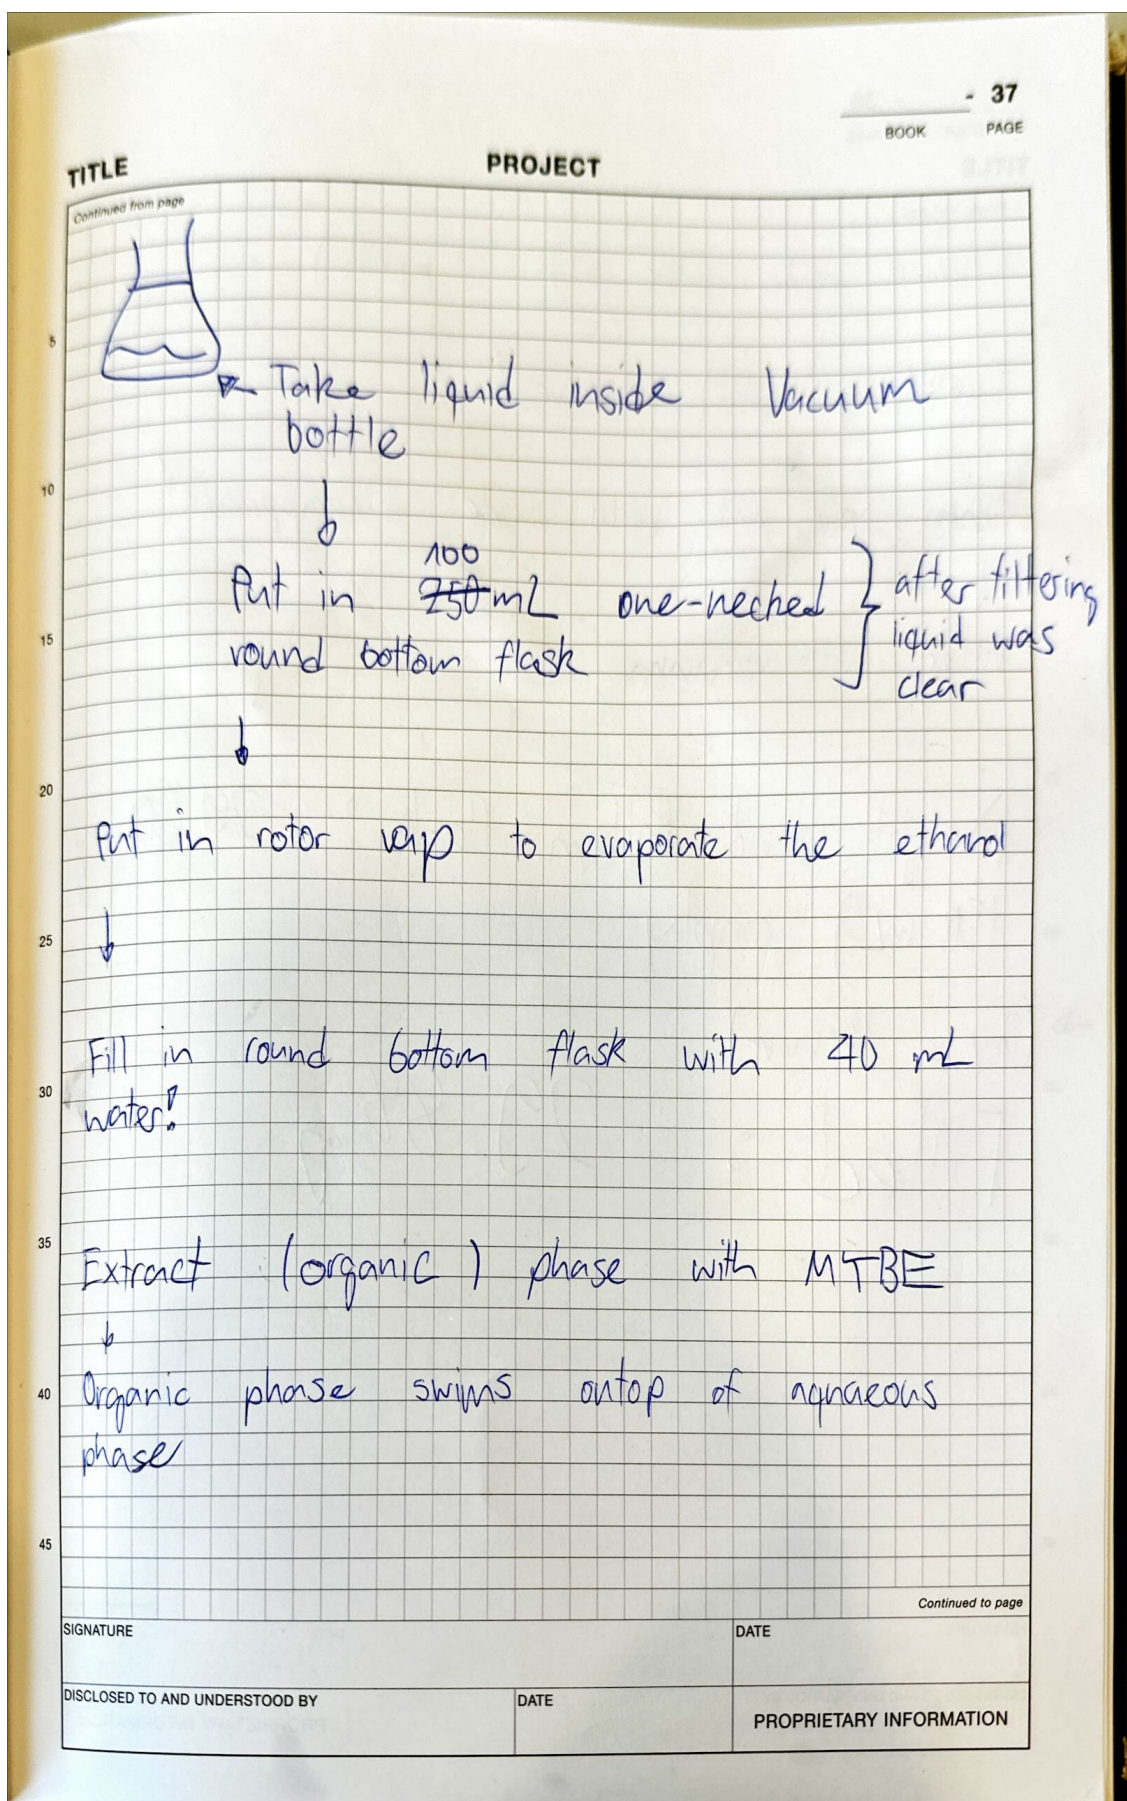 - 37
BOOK PAGE
TITLE PROJECT
Continued from page
5
Take liquid inside Vacuum
bottle
10
100
Put in 250 mL one-necked
round bottom flask
after filtering
liquid was
clear
15
20
Put in rotor vap to evaporate the ethanol
25
Fill in round bottom flask with 40 mL
30
water!
35
Extract (organic) phase with MTBE
Organic phase swims ontop of aquaeous
40
phase
45
Continued to page
SIGNATURE DATE
DISCLOSED TO AND UNDERSTOOD BY DATE
PROPRIETARY INFORMATION